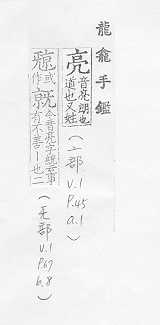 龍龕手鑑
亮 音亮朗也
道也又姓
(亠部
v.1
p.45
a.1)
或
作 就 今音亮字統云事
有不善丨也二
(无部
v.1
p.67
b.8)